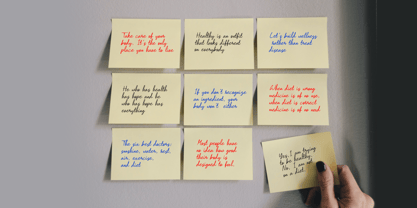 Take care of your
body. It's the only
place you have to live
Healthy is an outfit
that looks different
on everybody
Let's build wellness
rather than treat
disease
He who has health
has hope and he
who has hope has
everything
If you don't recognize
an ingredient, your
body won't either
When diet is wrong,
medicine is of no use,
when diet is correct
medicine is of no need
The six best doctors:
sunshine, water, rest,
air, exercise,
and diet
Most people have
no idea how good
their body is
designed to feel.
Yes, I am trying
to be healthy.
No, I am not
on a diet.